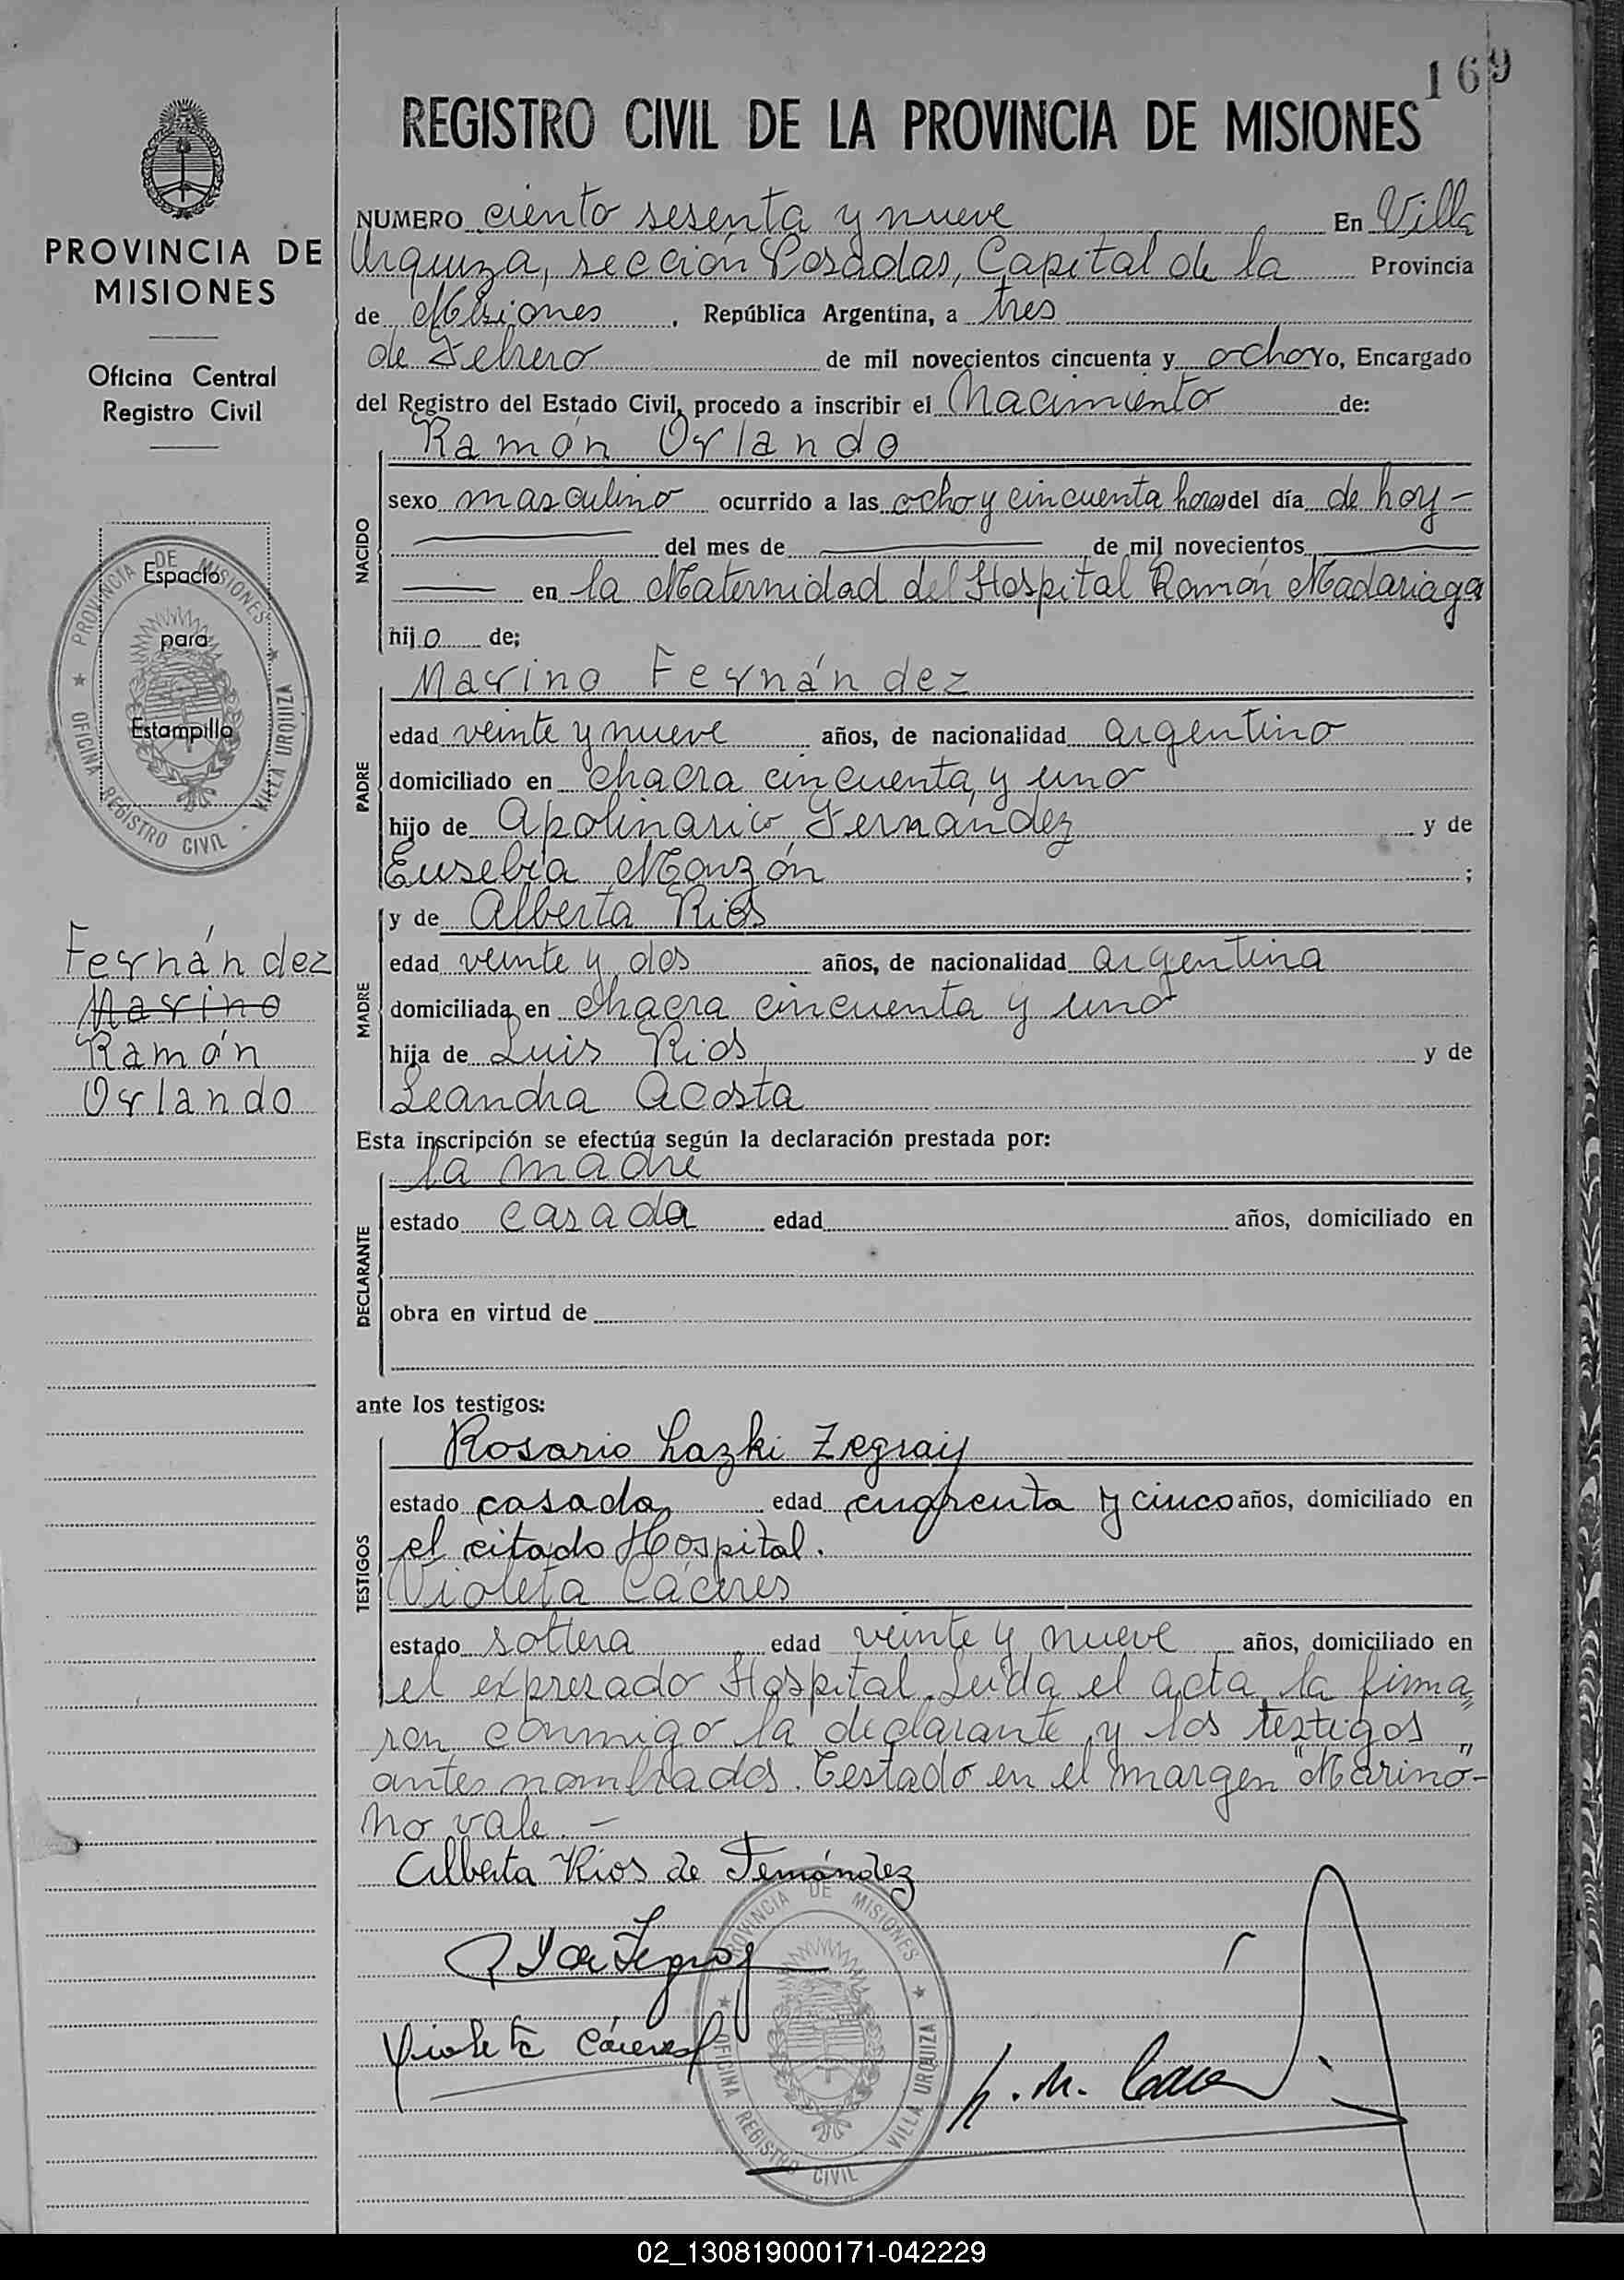 169
PROVINCIA DE
MISIONES
Oficina Central
Registro Civil
PROVINCIA DE MISIONES
OFICINA REGISTRO CIVIL - VILLA URQUIZA
Espacio
para
Estampilla
Fernández
Marino
Ramón
Orlando
REGISTRO CIVIL DE LA PROVINCIA DE MISIONES
NUMERO ciento sesenta y nueve En Villa
Urquiza, sección Posadas, Capital de la Provincia
de Misiones, República Argentina, a tres
de Febrero de mil novecientos cincuenta y ocho Yo, Encargado
del Registro del Estado Civil, procedo a inscribir el Nacimiento de:
Ramón Orlando
NACIDO
sexo masculino ocurrido a las ocho y cincuenta horas del día de hoy -
del mes de de mil novecientos
en la Maternidad del Hospital Ramón Madariaga
hijo de;
Marino Fernández
PADRE
edad veinte y nueve años, de nacionalidad argentino
domiciliado en chacra cincuenta y uno
hijo de Apolinario Fernandez y de
Eusebia Monzón ;
y de Alberta Rios
MADRE
edad veinte y dos años, de nacionalidad argentina
domiciliada en chacra cincuenta y uno
hija de Luis Rios y de
Leandra Acosta
Esta inscripción se efectúa según la declaración prestada por:
la madre
DECLARANTE
estado casada edad años, domiciliado en
obra en virtud de
ante los testigos:
Rosario Lazki Zegray
TESTIGOS
estado casada edad cuarenta y cinco años, domiciliado en
el citado Hospital.
Violeta Cáceres
estado soltera edad veinte y nueve años, domiciliado en
el expresado Hospital. Leida el acta la firma=
ron conmigo la declarante y los testigos
antes nombrados. Testado en el margen "Marino"-
no vale. -
Alberta Rios de Fernández
Violeta Cáceres
PROVINCIA DE MISIONES
OFICINA REGISTRO CIVIL VILLA URQUIZA
02_130819000171-042229